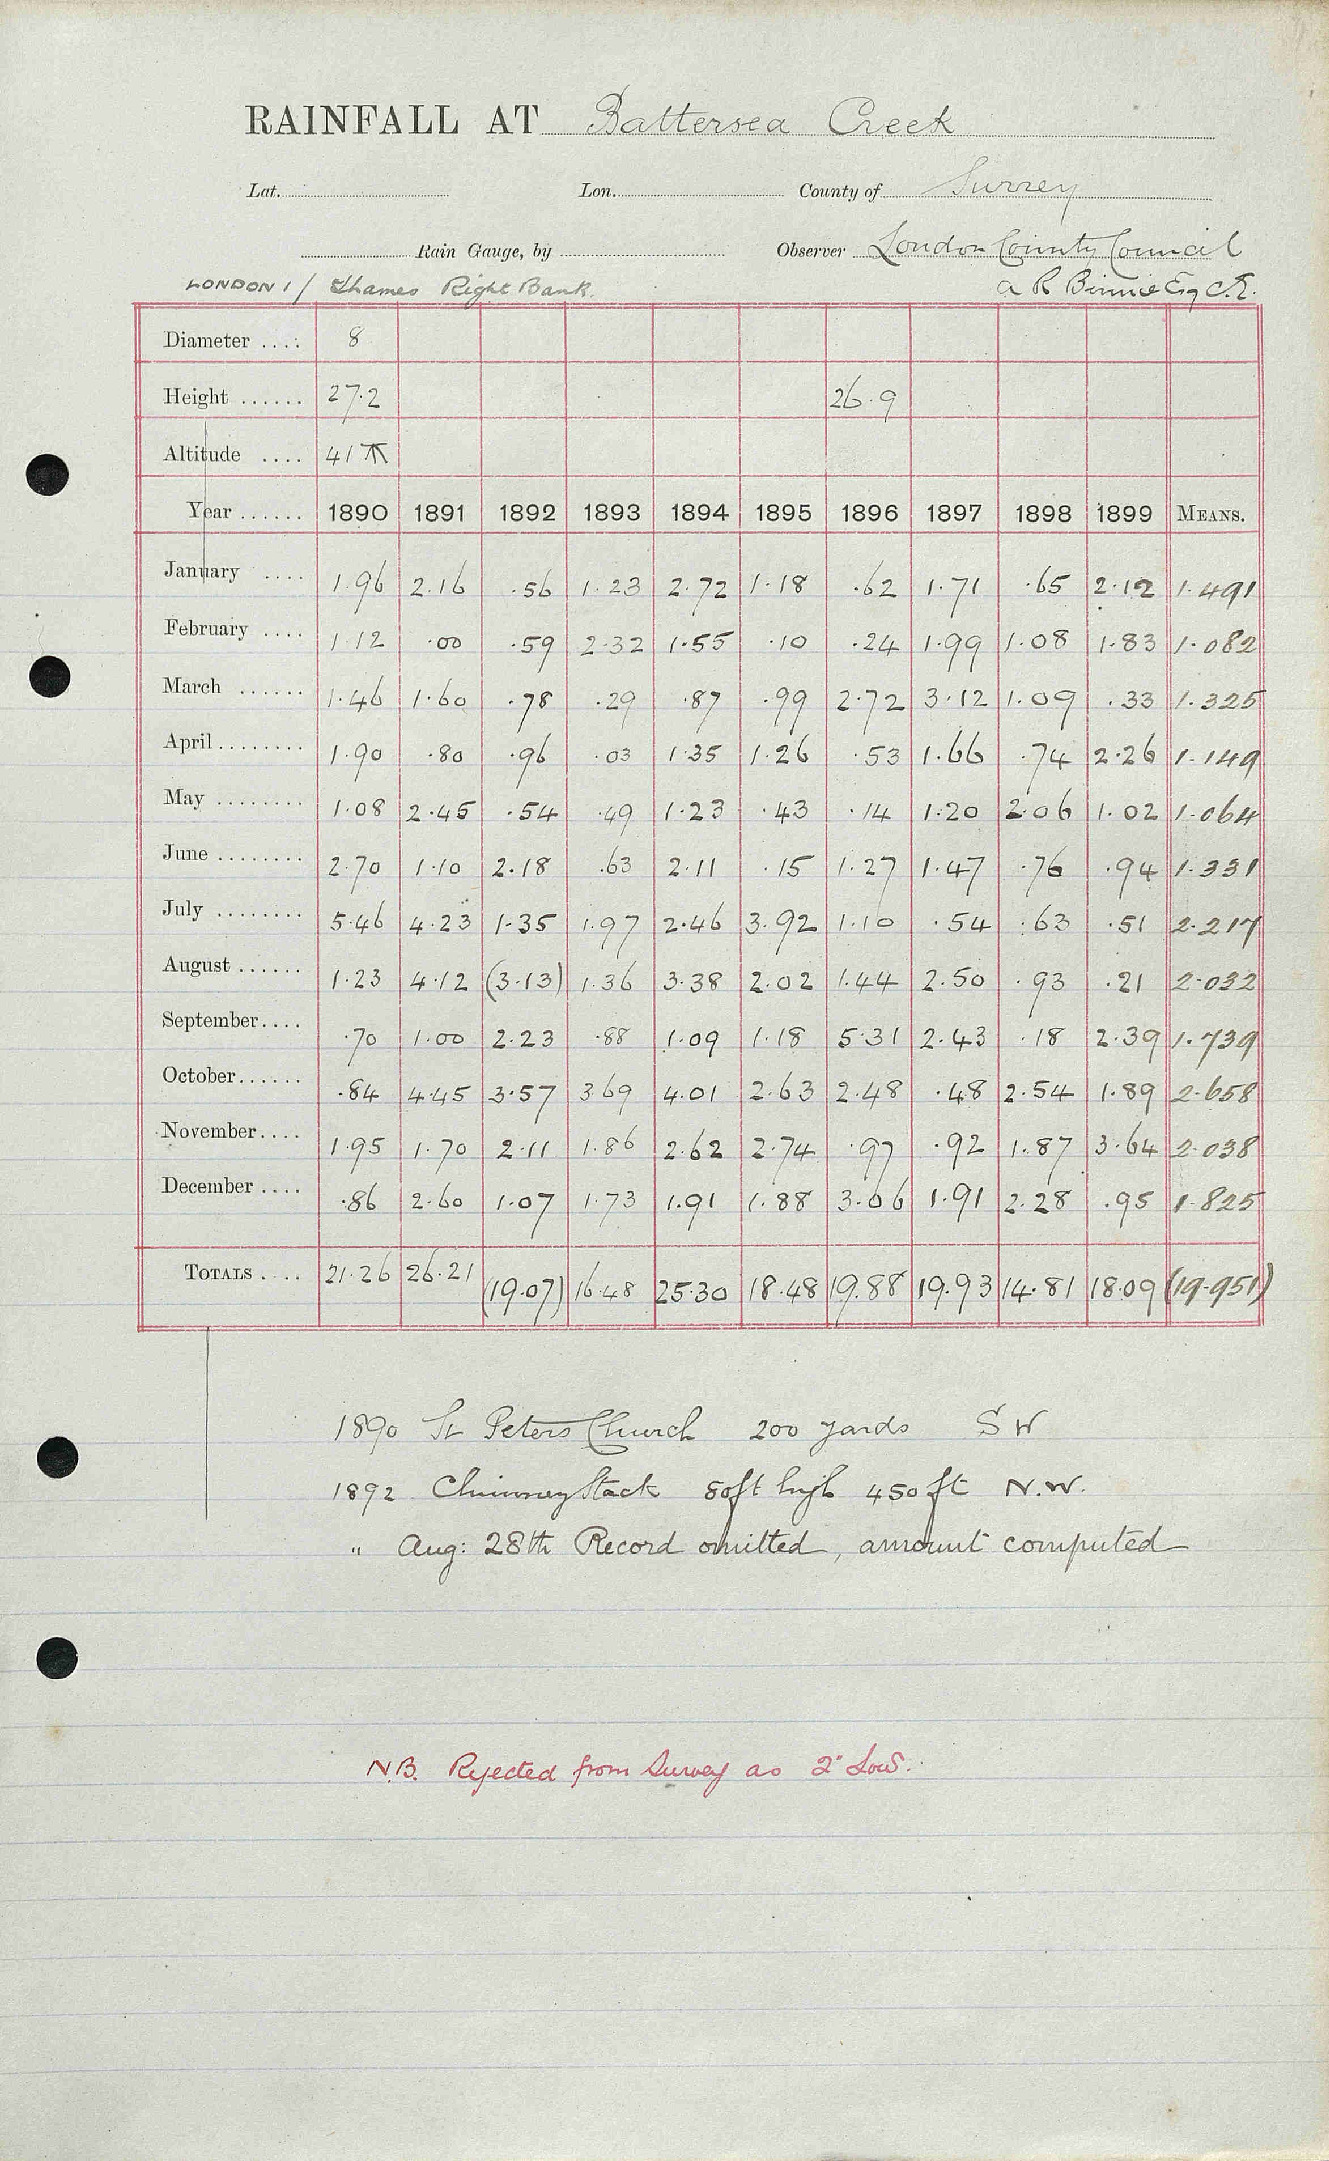 RAINFALL AT Battersea Creek
Lat. Lon. County of Surrey
Rain Gauge, by Observer London County Council
LONDON 1 / Thames Right Bank. A R Binnie Esq C.E.
Diameter .... 8
Height ...... 27.2 26.9
Altitude .... 41
Year ...... 1890 1891 1892 1893 1894 1895 1896 1897 1898 1899 MEANS.
January .... 1.96 2.16 .56 1.23 2.72 1.18 .62 1.71 .65 2.12 1.491
February .... 1.12 .00 .59 2.32 1.55 .10 .24 1.99 1.08 1.83 1.082
March ...... 1.46 1.60 .78 .29 .87 .99 2.72 3.12 1.09 .33 1.325
April ........ 1.90 .80 .96 .03 1.35 1.26 .53 1.66 .74 2.26 1.149
May ........ 1.08 2.45 .54 .49 1.23 .43 .14 1.20 2.06 1.02 1.064
June ........ 2.70 1.10 2.18 .63 2.11 .15 1.27 1.47 .76 .94 1.331
July ........ 5.46 4.23 1.35 1.97 2.46 3.92 1.10 .54 .63 .51 2.217
August ...... 1.23 4.12 (3.13) 1.36 3.38 2.02 1.44 2.50 .93 .21 2.032
September .... .70 1.00 2.23 .88 1.09 1.18 5.31 2.43 .18 2.39 1.739
October ...... .84 4.45 3.57 3.69 4.01 2.63 2.48 .48 2.54 1.89 2.658
November .... 1.95 1.70 2.11 1.86 2.62 2.74 .97 .92 1.87 3.64 2.038
December .... .86 2.60 1.07 1.73 1.91 1.88 3.06 1.91 2.28 .95 1.825
TOTALS .... 21.26 26.21 (19.07) 16.48 25.30 18.48 19.88 19.93 14.81 18.09 (19.951)
1890 St Peters Church 200 yards S W
1892 Chimney Stack 80ft high 450ft N.W.
" Aug: 28th Record omitted, amount computed
N.B. Rejected from Survey as 2" Low.